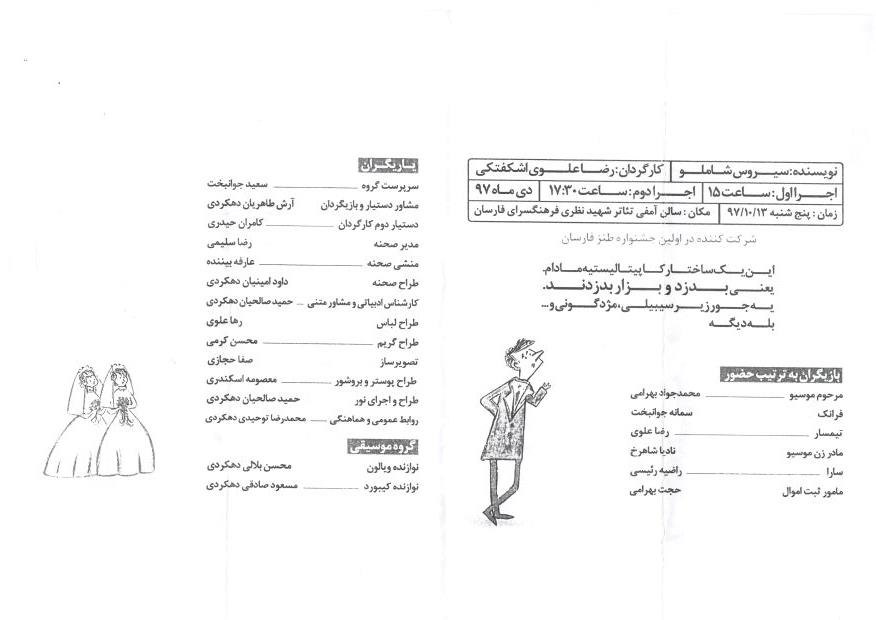 نویسنده: سیروس شاملو | کارگردان: رضا علوی اشکفتکی
اجرا اول: ساعت ۱۵ | اجرا دوم: ساعت ۱۷:۳۰ | دی ماه ۹۷
زمان: پنج شنبه ۹۷/۱۰/۱۳ | مکان: سالن آمفی تئاتر شهید نظری فرهنگسرای فارسان
شرکت کننده در اولین جشنواره طنز فارسان
این یک ساختار کاپیتالیستیه مادام.
یعنی بدزد و بزار بدزدند.
یه جور زیر سیبیلی، مژدگونی و...
بله دیگه
بازیگران به ترتیب حضور
مرحوم موسیو محمدجواد بهرامی
فرانک سمانه جوانبخت
تیمسار رضا علوی
مادر زن موسیو نادیا شاهرخ
سارا راضیه رئیسی
مامور ثبت اموال حجت بهرامی
یاریگران
سرپرست گروه سعید جوانبخت
مشاور دستیار و بازیگردان آرش طاهریان دهکردی
دستیار دوم کارگردان کامران حیدری
مدیر صحنه رضا سلیمی
منشی صحنه عارفه بیننده
طراح صحنه داود امینیان دهکردی
کارشناس ادبیاتی و مشاور متنی حمید صالحیان دهکردی
طراح لباس رها علوی
طراح گریم محسن کرمی
تصویرساز صفا حجازی
طراح پوستر و بروشور معصومه اسکندری
طراح و اجرای نور حمید صالحیان دهکردی
روابط عمومی و هماهنگی محمدرضا توحیدی دهکردی
گروه موسیقی
نوازنده ویالون محسن بلالی دهکردی
نوازنده کیبورد مسعود صادقی دهکردی